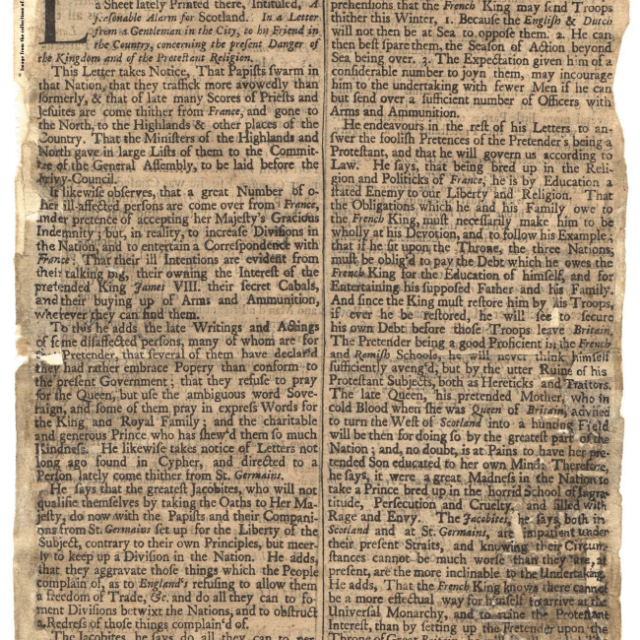 a Sheet lately Printed there, Intituled, A
L
seasonable Alarm for Scotland. In a Letter
from a Gentleman in the City, to his Friend in
the Country, concerning the present Danger of
the Kingdom and of the Protestant Religion.
This Letter takes Notice, That Papists swarm in
that Nation, that they traffick more avowedly than
formerly, & that of late many Scores of Priests and
Jesuites are come thither from France, and gone to
the North, to the Highlands & other places of the
Country. That the Ministers of the Highlands and
North gave in large Lists of them to the Commit-
tee of the General Assembly, to be laid before the
Privy-Council.
It likewise observes, that a great Number of o-
ther ill-affected persons are come over from France,
under pretence of accepting her Majesty's Gracious
Indemnity; but, in reality, to increase Divisions in
the Nation, and to entertain a Correspondence with
France: That their ill Intentions are evident from
their talking big, their owning the Interest of the
pretended King James VIII. their secret Cabals,
and their buying up of Arms and Ammunition,
wherever they can find them.
To this he adds the late Writings and Actings
of some disaffected persons, many of whom are for
the Pretender, that several of them have declar'd
they had rather embrace Popery than conform to
the present Government; that they refuse to pray
for the Queen, but use the ambiguous word Sove-
raign, and some of them pray in express Words for
the King and Royal Family; and the charitable
and generous Prince who has shew'd them so much
Kindness. He likewise takes notice of Letters not
long ago found in Cypher, and directed to a
Person lately come thither from St. Germains.
He says that the greatest Jacobites, who will not
qualifie themselves by taking the Oaths to Her Ma-
jesty, do now with the Papists and their Compani-
ons from St. Germains set up for the Liberty of the
Subject, contrary to their own Principles, but meer-
ly to keep up a Division in the Nation. He adds,
that they aggravate those things which the People
complain of, as to England's refusing to allow them
a freedom of Trade, &c. and do all they can to fo-
ment Divisions betwixt the Nations, and to obstruct
a Redress of those things complain'd of.
The Jacobites, he says, do all they can to per-
prehensions that the French King may send Troops
thither this Winter, 1. Because the English & Dutch
will not then be at Sea to oppose them. 2. He can
then best spare them, the Season of Action beyond
Sea being over. 3. The Expectation given him of a
considerable number to joyn them, may incourage
him to the undertaking with fewer Men if he can
but send over a sufficient number of Officers with
Arms and Ammunition.
He endeavours in the rest of his Letters to an-
swer the foolish Pretences of the Pretender's being a
Protestant, and that he will govern us according to
Law. He says, that being bred up in the Reli-
gion and Politicks of France, he is by Education a
stated Enemy to our Liberty and Religion. That
the Obligations which he and his Family owe to
the French King, must necessarily make him to be
wholly at his Devotion, and to follow his Example;
that if he sit upon the Throne, the three Nations
must be oblig'd to pay the Debt which he owes the
French King for the Education of himself, and for
Entertaining his supposed Father and his Family.
And since the King must restore him by his Troops,
if ever he be restored, he will see to secure
his own Debt before those Troops leave Britain.
The Pretender being a good Proficient in the French
and Romish Schools, he will never think himself
sufficiently aveng'd, but by the utter Ruine of his
Protestant Subjects, both as Hereticks and Traitors.
The late Queen, his pretended Mother, who in
cold Blood when she was Queen of Britain, advised
to turn the West of Scotland into a hunting Field
will be then for doing so by the greatest part of the
Nation; and, no doubt, is at Pains to have her pre-
tended Son educated to her own Mind: Therefore,
he says, it were a great Madness in the Nation to
take a Prince bred up in the horrid School of Ingra-
titude, Persecution and Cruelty, and filled with
Rage and Envy. The Jacobites, he says, both in
Scotland and at St. Germains, are impatient under
their present Straits, and knowing their Circum-
stances cannot be much worse than they are, at
present, are the more inclinable to the Undertaking.
He adds, That the French King knows there cannot
be a more effectual way for himself to arrive at the
Universal Monarchy, and to ruine the Protestant
Interest, than by setting up the Pretender upon the
Throne of Great